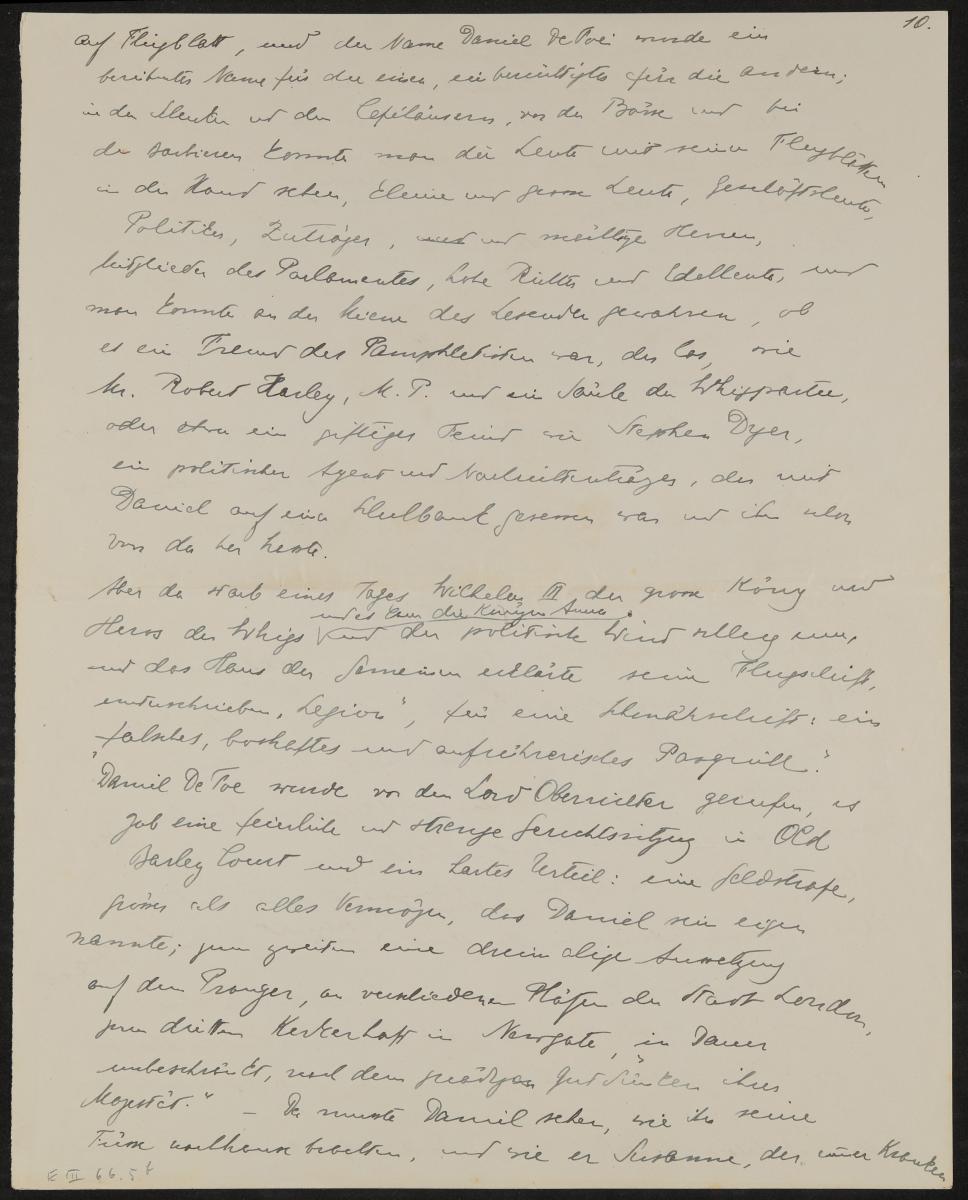 10.
auf Flugblatt, und der Name Daniel DeFoe wurde ein
berühmter Name für die einen, ein berüchtigter für die andern;
in den Schenken und den Caféhäusern, vor der Börse und bei
den Barbieren konnte man die Leute mit seinen Flugblättern
in der Hand sehen, kleine und grosse Leute, Geschäftsleute,
Politiker, Zuträger, und mächtige Herren,
Mitglieder des Parlamentes, hohe Richter und Edelleute, und
man konnte an der Miene des Lesenden gewahren, ob
es ein Freund des Pamphletisten war, der las, wie
Mr. Robert Harley, M. P. und eine Säule der Whigpartei,
oder etwa ein giftiger Feind wie Stephen Dyer,
ein politischer Agent und Nachrichtenträger, der mit
Daniel auf einer Schulbank gesessen war und ihn schon
von da her hasste.
Aber da starb eines Tages Wilhelm III, der grosse König und
und es kam die Königin Anna.
Heros der Whigs und der politische Wind schlug um,
und das Haus der Gemeinen erklärte seine Flugschrift,
unterschrieben "Legion", für eine Schmähschrift: ein
falsches, boshaftes und aufrührerisches Pasquill."
"Daniel DeFoe wurde vor den Lord Oberrichter gerufen, es
gab eine feierliche und strenge Gerichtssitzung in Old
Barley Court und ein hartes Urteil: eine Geldstrafe,
grösser als alles Vermögen, das Daniel sein eigen
nannte; zum zweiten eine dreimalige Aussetzung
auf dem Pranger, an verschiedenen Plätzen der Stadt London,
zum dritten Kerkerhaft in Newgate, "in Dauer
unbeschränkt, nach dem gnädigen Gutdünken ihrer
Majestät." – Da musste Daniel sehen, wie ihn seine
Füsse wohlhause brachten, und wie er Susanne, der immer Kranken
E III 66.5f